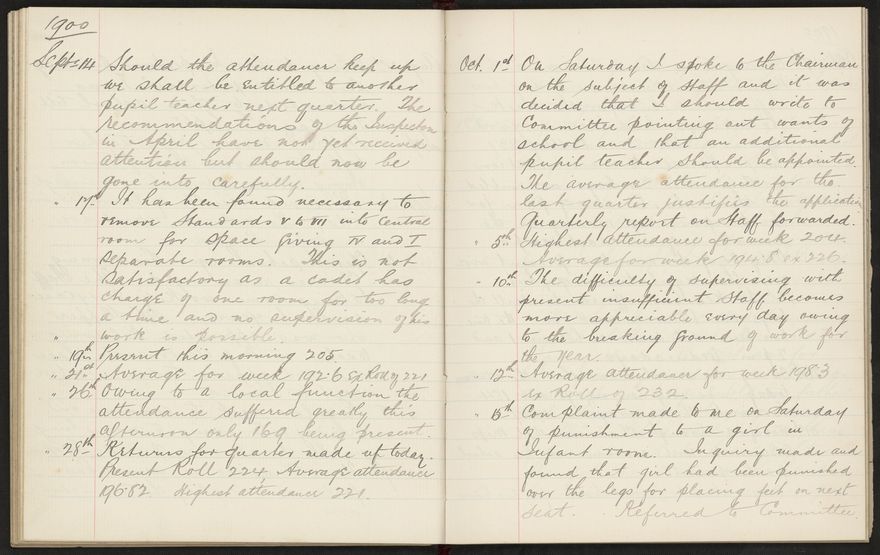 1900
Sept. 14 Should the attendance keep up
we shall be entitled to another
pupil teacher next quarter. The
recommendations of the Inspectors
in April have not yet received
attention but should now be
gone into carefully.
" 17th It has been found necessary to
remove Standards V to VII into Central
room for space giving IV and I
separate rooms. This is not
satisfactory as a cadet has
charge of one room for too long
a time and no supervision of his
" work is possible.
" 19th Present this morning 205
" 21st Average for week 192.6 Ex Roll of 221
" 26th Owing to a local function the
attendance suffered greatly this
afternoon only 169 being present.
" 28th Returns for quarter made up today.
Present Roll 224. Average attendance
196.82 Highest attendance 221.
Oct. 1st On Saturday I spoke to the Chairman
on the subject of Staff and it was
decided that I should write to
Committee pointing out wants of
school and that an additional
pupil teacher should be appointed.
The average attendance for the
last quarter justifies the application
Quarterly report on Staff forwarded.
" 5th Highest attendance for week 204.
Average for week 194.8 ex 226.
" 10th The difficulty of supervising with
present insufficient Staff becomes
more appreciable every day owing
to the breaking ground of work for
the year.
" 12th Average attendance for week 198.3
ex Roll of 232.
" 15th Complaint made to me on Saturday
of punishment to a girl in
Infant room. Inquiry made and
found that girl had been punished
over the legs for placing feet on next
seat. Referred to Committee.